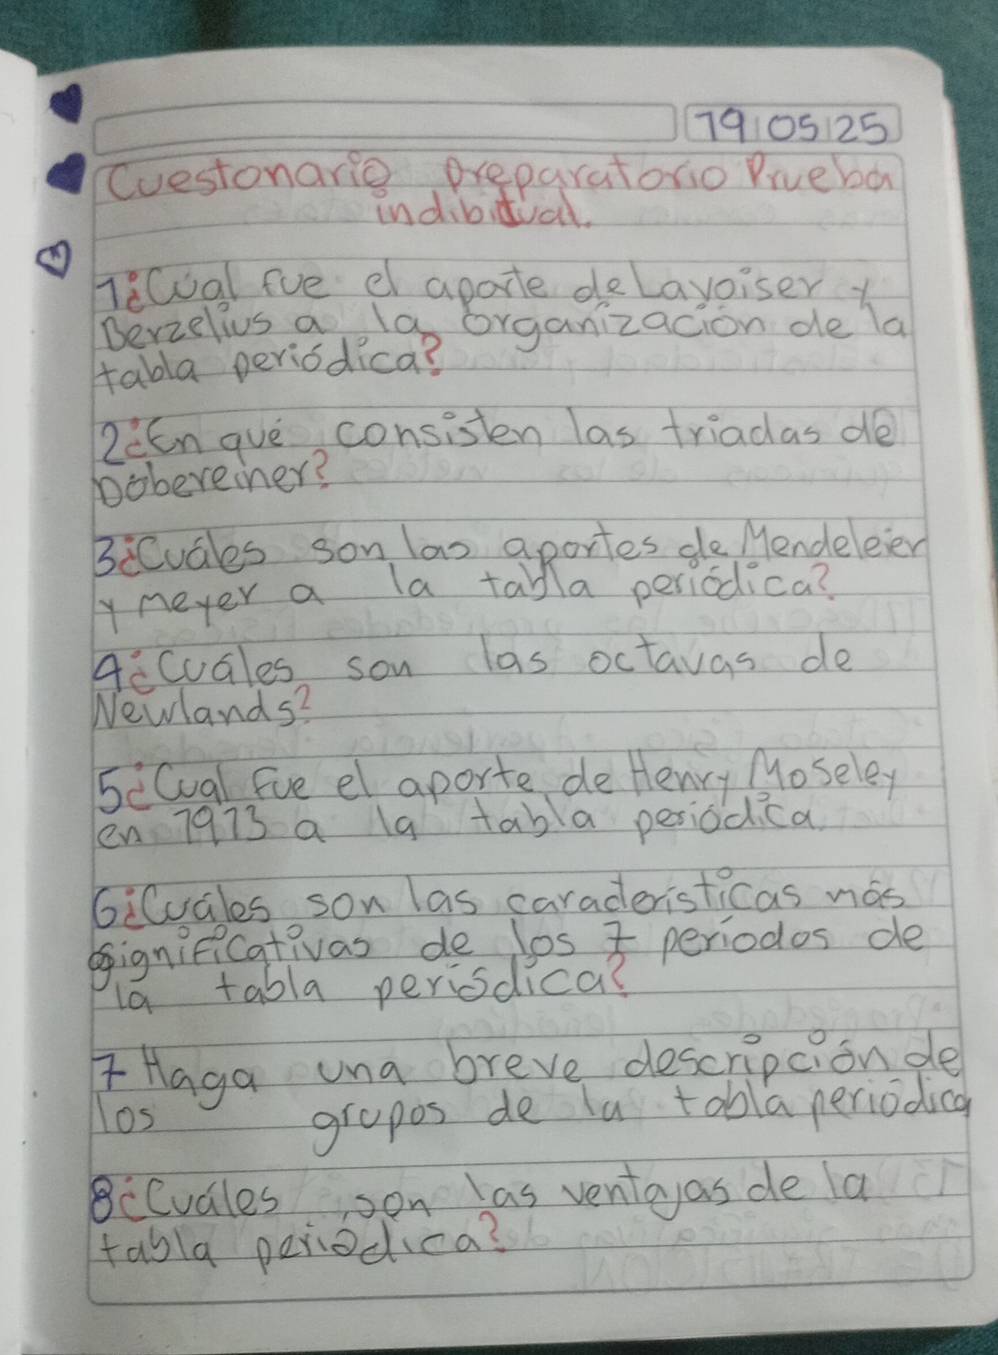 19/05/25
Cuestonario preparatorio Prueba
indibidual.
1¿Cual fue el aporte de Lavoiser y
Berzelius a la organización de la
tabla periódica?
2¿En qué consisten las triadas de
Dobereiner?
3¿Cuáles son las aportes de Mendeleier
y meyer a la tabla periódica?
4¿Cuáles son las octavas de
Newlands?
5¿Cual fue el aporte de Henry Moseley
en 1913 a la tabla periódica
6¿Cuáles son las caracteristicas más
significativas de los 7 períodos de
la tabla periódica?
7 Haga una breve descripción de
los grupos de la tabla periódica
8¿Cuáles son las ventajas de la
tabla periódica?